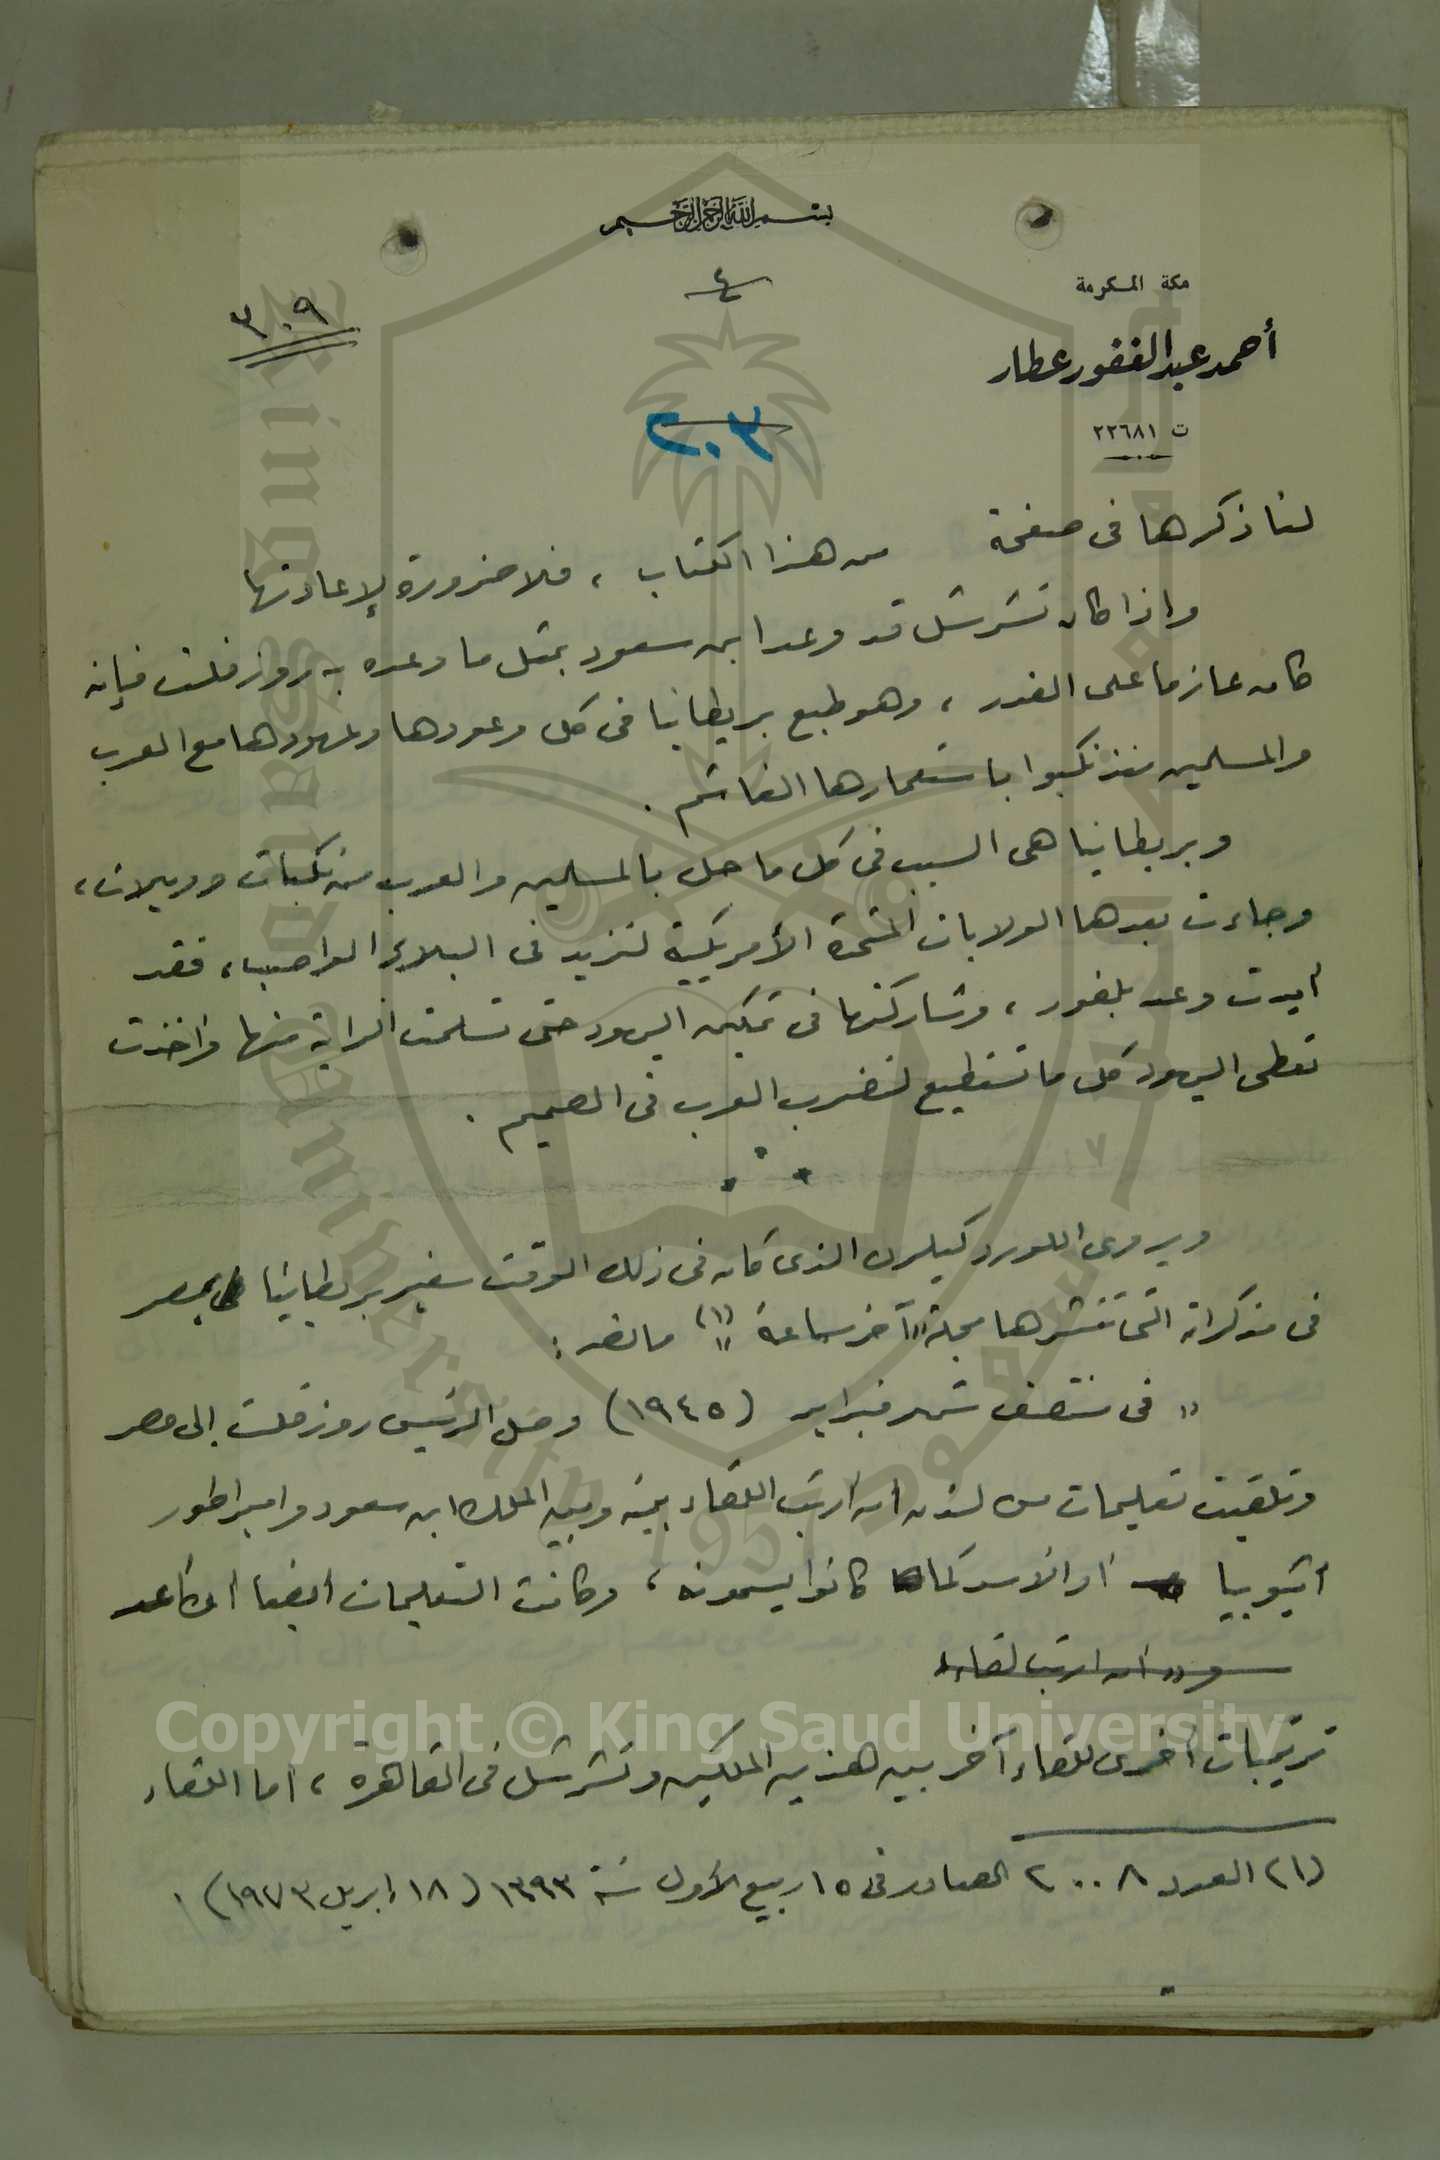 بسم الله الرحمن الرحيم
٤
مكة المكرمة
أحمد عبد الغفور عطار
ت ٢٢٦٨١
٣٠٩
٢٠٣
لنا ذكرها فى صفحة من هذا الكتاب ، فلا ضرورة لإعادتها
واذا كان تشرشل قد وعد ابن سعود بمثل ما وعده به روزفلت فإنه
كان عازما على الغدر ، وهو طبع بريطانيا فى كل وعودها وعهودها مع العرب
والمسلمين منذ نكبوا باستعمارها الغاشم .
وبريطانيا هى السبب فى كل ما حل بالمسلمين والعرب من نكبات وويلات ،
وجاءت بعدها الولايات المتحدة الأمريكية لتزيد فى البلاء ، فقد
أيدت وعد بلفور ، وشاركتها فى تمكين اليهود حتى تسلمت الراية منها وأخذت
تعطى اليهود كل ما تستطيع لتضرب العرب فى الصميم .
ويروى اللورد كيلرن الذى كان فى ذلك الوقت سفير بريطانيا بمصر
فى مذكراته التى تنشرها مجلة "آخر ساعة" (١) ما نصه :
" فى منتصف شهر فبراير (١٩٤٥) وصل الرئيس روزفلت إلى مصر
وتلقيت تعليمات من لندن أن أرتب اللقاء بينه وبين الملك ابن سعود وامبراطور
أثيوبيا أو الأسد كما كانوا يسمونه ، وكانت التعليمات أيضا أن أعد
أن ارتب لقاء
ترتيبات أخرى للقاء آخر بين هذين الملكين وتشرشل فى القاهرة ، أما اللقاء
(١) العدد ٢٠٠٨ الصادر فى ١٥ ربيع الأول سنة ١٣٩٣ (١٨ إبريل ١٩٧٣) .
King Saud University
1957
جامعة الملك سعود
Copyright © King Saud University